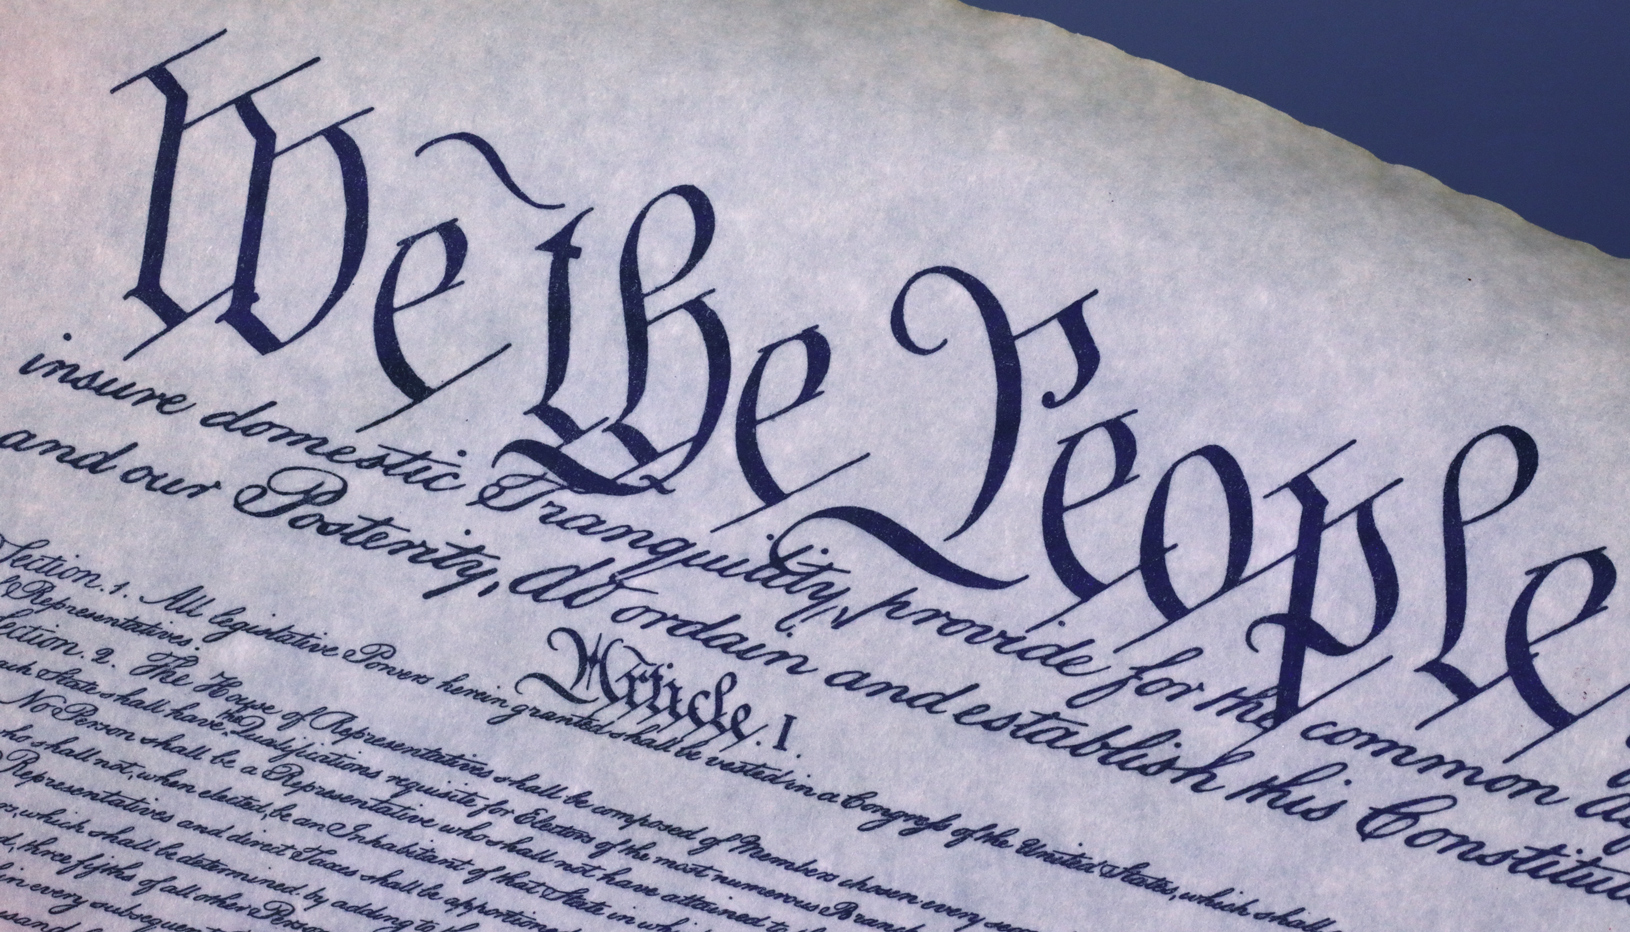 We the People
insure domestic Tranquility, provide for the common
and our Posterity, do ordain and establish this Constitu
Article. I.
Section. 1. All legislative Powers herein granted shall be vested in a Congress of the United States, which shall
Representatives.
Section. 2. The House of Representatives shall be composed of Members chosen every
each State shall have the Qualifications requisite for Electors of the most numerous Branch
No Person shall be a Representative who shall not have attained to
who shall not, when elected, be an Inhabitant of that State in
Representatives and direct Taxes shall be apportioned
which shall be determined by adding to
three fifths of all other Person
in every subsequent